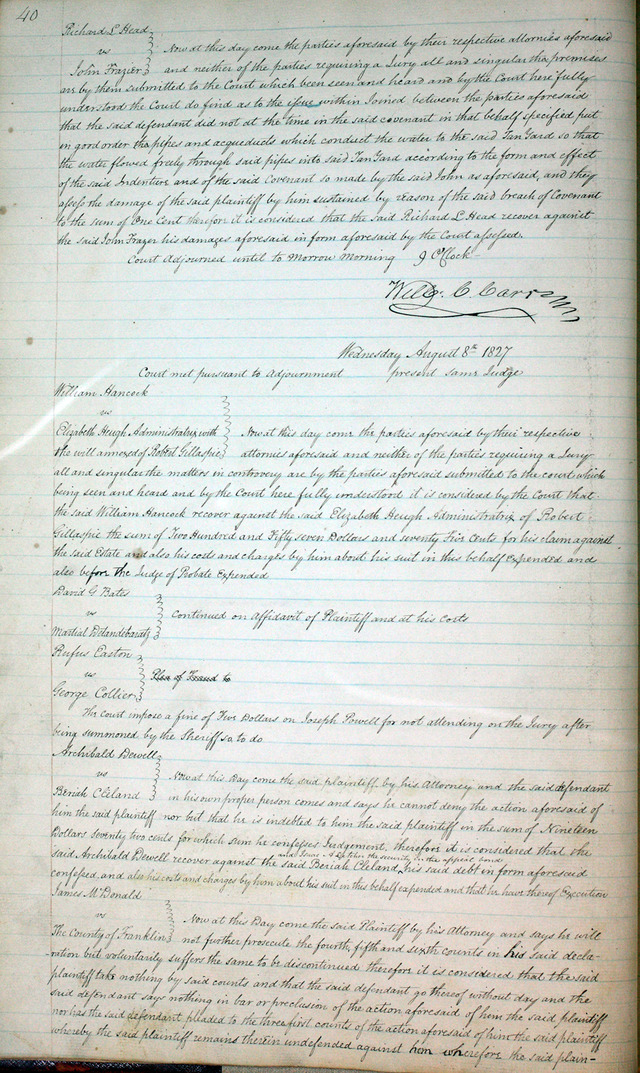 40
Richard L Head
vs Now at this day come the parties aforesaid by their respective attornies aforesaid
John Frazier and neither of the parties requiring a Jury all and singular the premises
on by them submitted to the Court which been seen and heard and by the Court here fully
understood the Court do find as to the issue within Joined between the parties aforesaid
that the said defendant did not at the time in the said covenant in that behalf specified put
in good order the pipes and acqueducts which conduct the water to the said Tan Yard so that
the water flowed freely through said pipes into said Tan Yard according to the form and effect
of the said Indenture and of the said Covenant so made by the said John as aforesaid, and they
assess the damage of the said plaintiff by him sustained by reason of the said breach of Covenant
to the sum of One Cent therefore it is considered that the said Richard L Head recover against
the said John Frazer his damages aforesaid in form aforesaid by the Court assessed.
Court Adjourned until to Morrow Morning 9 O'Clock
Will. C. Carr
Wednesday August 8th 1827
Court met pursuant to Adjournment present same Judge
William Hancock
vs
Elizabeth Heugh Administratrix with Now at this day come the parties aforesaid by their respective
the will annexed of Robert Gillaspie attornies aforesaid and neither of the parties requiring a Jury
all and singular the matters in controversy are by the parties aforesaid submitted to the court which
being seen and heard and by the Court here fully understood it is considered by the Court that
the said William Hancock recover against the said Elizabeth Heugh Administratrix of Robert
Gillaspie the sum of Two Hundred and Fifty seven Dollars and seventy Five Cents for his claim against
the said Estate and also his costs and charges by him about his suit in this behalf Expended and
also before the Judge of Probate Expended
David G Bates
vs Continued on Affidavit of Plaintiff and at his Costs
Martial Detandebaratz
Rufus Easton
vs Plea of Fraud to
George Collier
The court impose a fine of Five Dollars on Joseph Powell for not attending on the Jury after
being summoned by the Sheriff so to do
Archibald Dewell
vs Now at this Day come the said plaintiff by his Attorney and the said defendant
Beriah Cleland in his own proper person comes and says he cannot deny the action aforesaid of
him the said plaintiff nor but that he is indebted to him the said plaintiff in the sum of Nineteen
Dollars seventy two cents for which sum he confesses Judgement, therefore it is considered that the
and the security in the appeal bond
said Archibald Dewell recover against the said Beriah Cleland, his said debt in form aforesaid
confessed, and also his costs and charges by him about his suit in this behalf expended and that he have thereof Execution
James McDonald
vs Now at this Day come the said Plaintiff by his Attorney and says he will
The County of Franklin not further prosecute the fourth, fifth and sixth counts in his said decla-
ration but voluntarily suffers the same to be discontinued therefore it is considered that the said
plaintiff take nothing by said counts and that the said defendant go thereof without day and the
said defendant says nothing in bar or preclusion of the action aforesaid of him the said plaintiff
nor has the said defendant pleaded to the three first counts of the action aforesaid of him the said plaintiff
whereby the said plaintiff remains therein undefended against him wherefore the said plain-